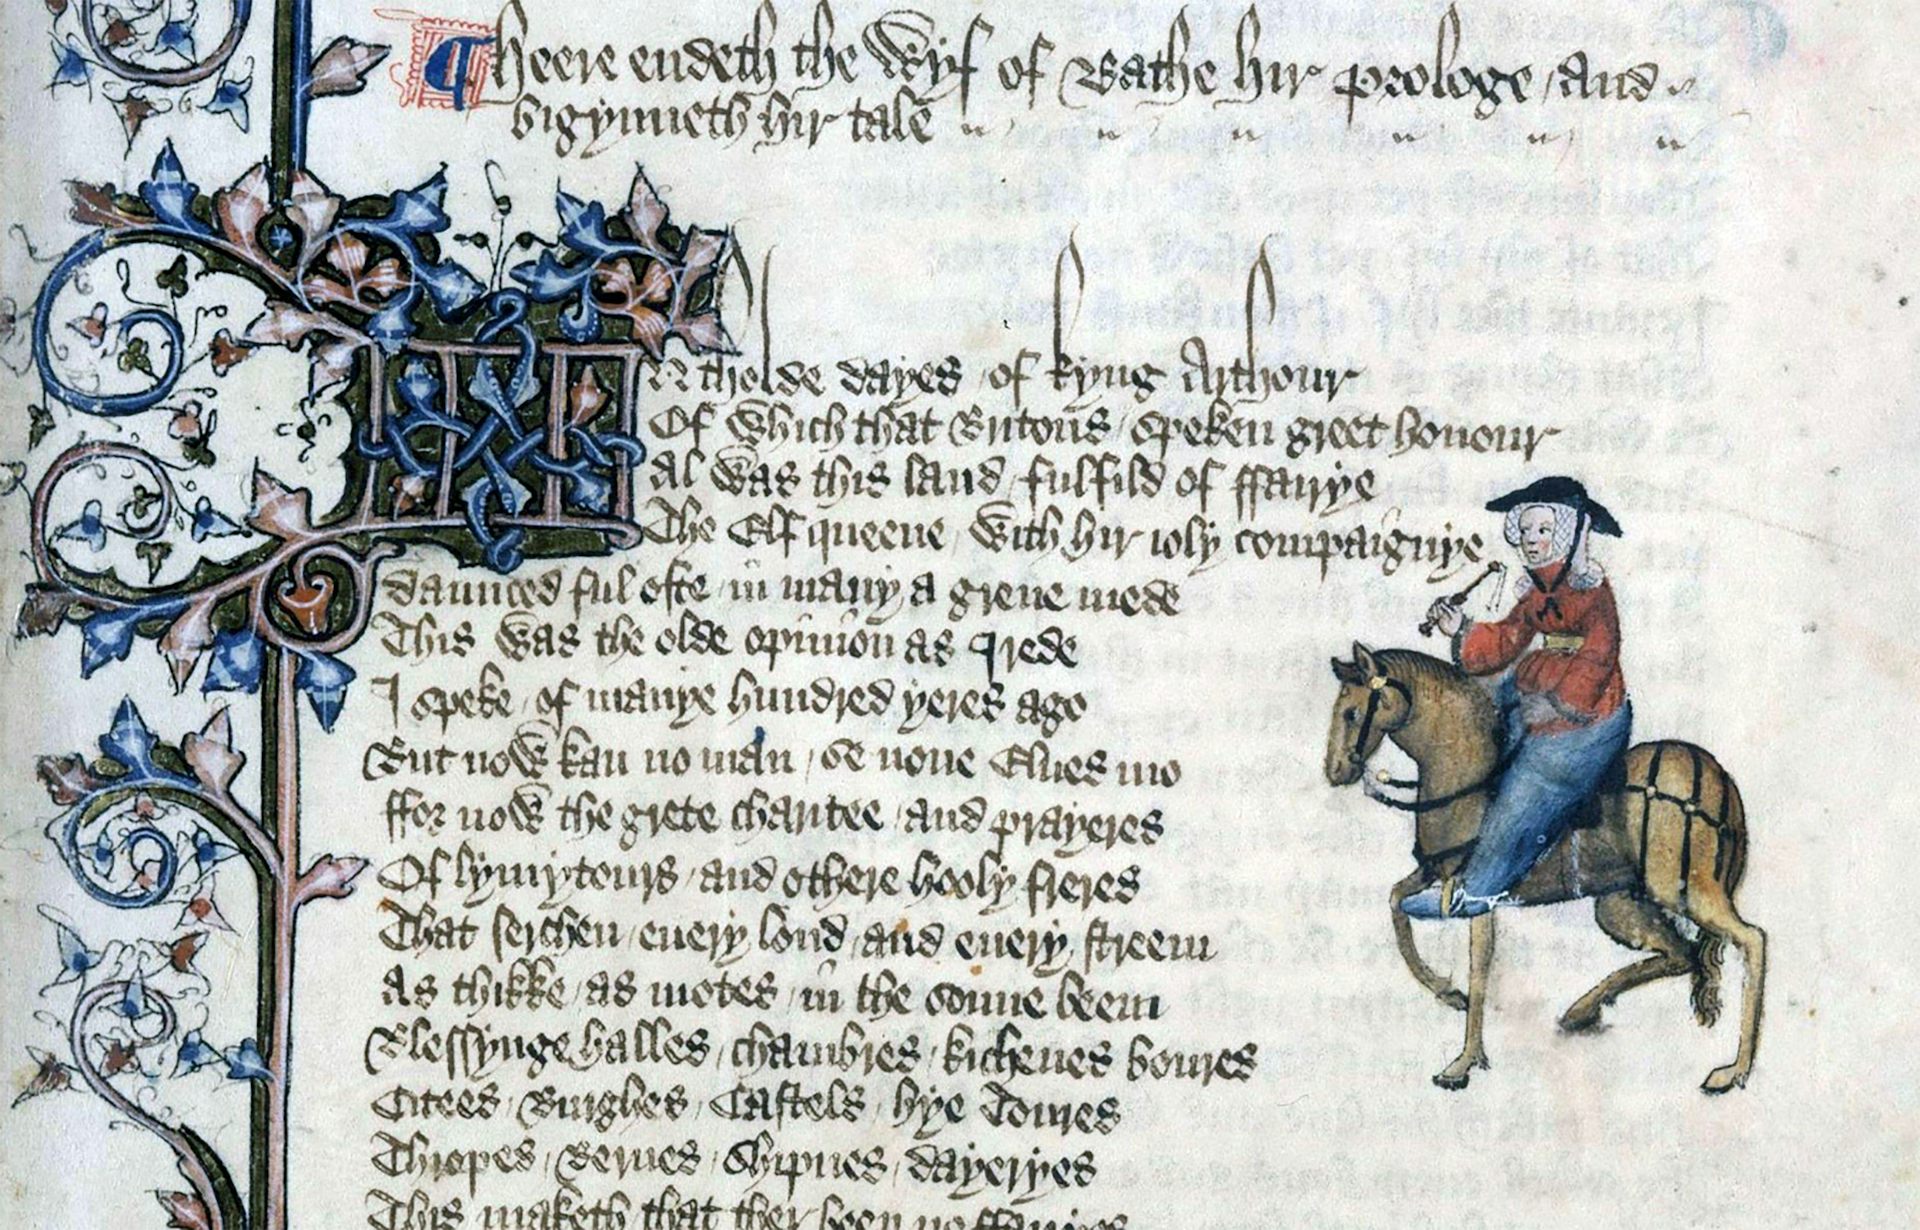 Heere endeth the Wyf of Bathe hir prologe / and
bigynneth hir tale
IN tholde dayes / of kyng Arthour
Of which that Britons / speken greet honour
Al was this land / fulfild of ffairye
The Elf queene / with hir ioly compaignye
Daunced ful ofte / in many a grene mede
This was the olde opinion as I rede
I speke / of manye hundred yeres ago
But now kan no man / se none Elues mo
ffor now the grete charitee / and prayeres
Of lymytours / and othere hooly freres
That serchen / euery lond / and euery streem
As thikke / as motes / in the sonne beem
Blessynge halles / chambres / kichenes boures
Citees / Burghes / Castels / hye Toures
Thropes / Bernes / Shipnes / dayeryes
This maketh / that ther been no ffairyes